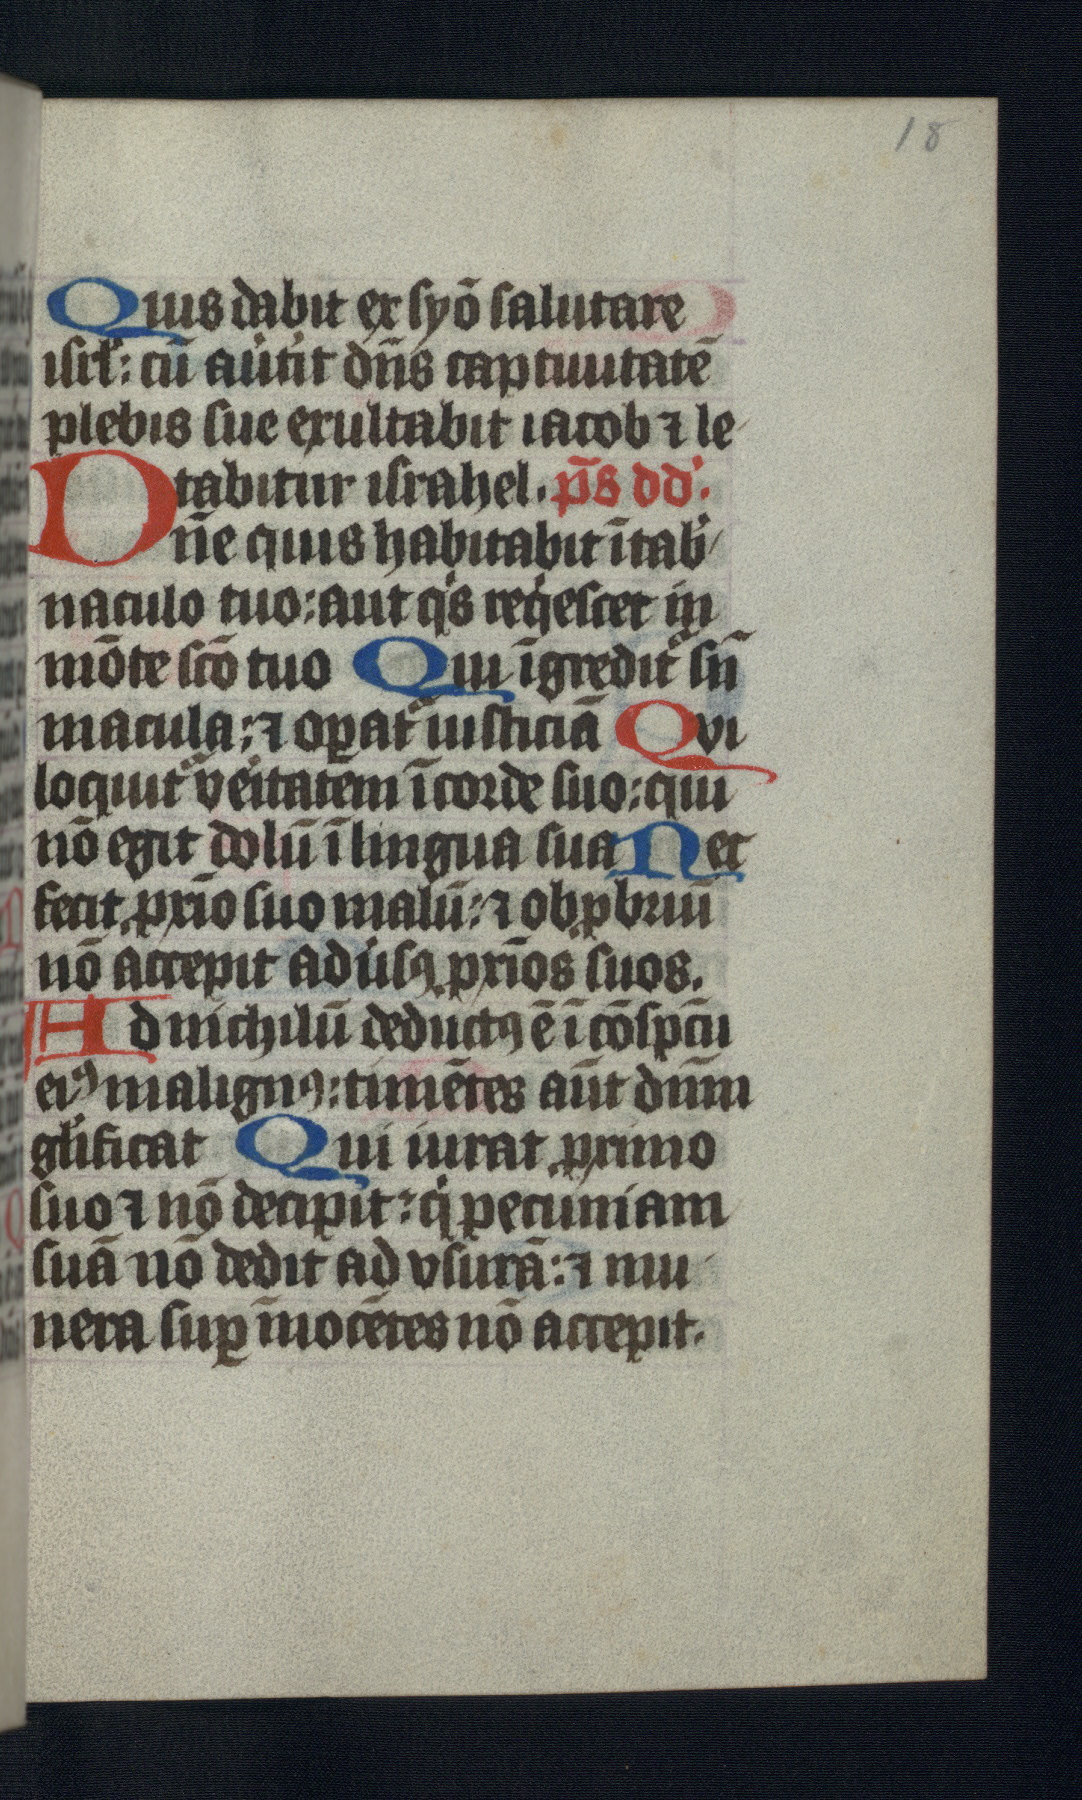 18
Quis dabit ex syō salutare
isrl̄: cū aűtit dn̄s captiuitatē
plebis sue exultabit iacob ⁊ le
tabitur israhel. p̄s dd̕.
Dn̄e quis habitabit ī tab̕
naculo tuo: aut qͥs reqͥescet in
mōte scō tuo Qui īgredit᷑ sn̄
macula: ⁊ oꝑat᷑ iusticiā Qvi
loquit᷑ v̕eitatem ī corde suo: qui
nō egit dolū ī lingua sua Nec
fecit ꝓxīo suo malū: ⁊ obꝓbriū
nō accepit adu̕sꝰ ꝓxīos suos.
Ad nichilū deductꝰ ē ī cōspc̄u
eiꝰ malignꝰ: timētes aūt dn̄m
gl̕ificat Qui iurat ꝓximo
suo ⁊ nō decipit: qͥ pecuniam
suā nō dedit ad vsurā: ⁊ mu
nera suꝑ īnocētes nō accepit.